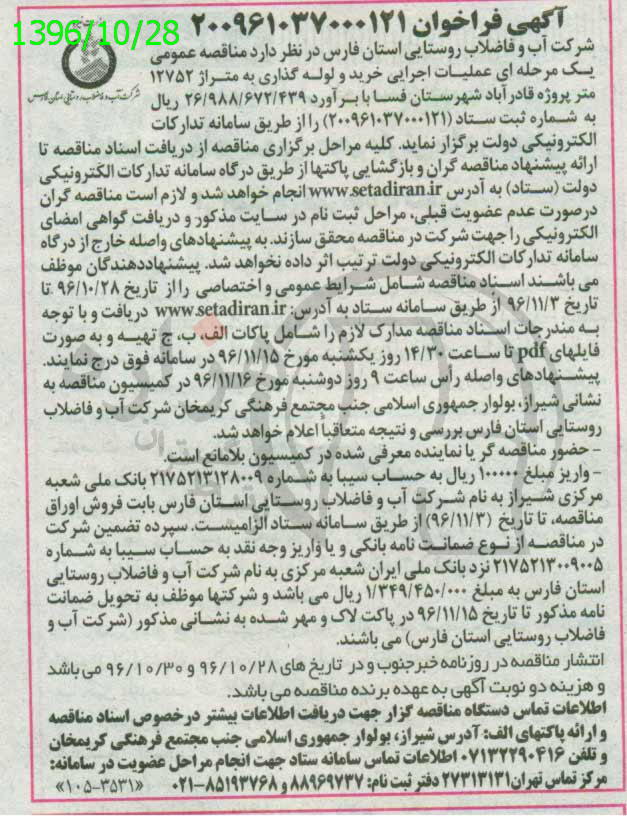 1396/10/28
آگهی فراخوان ۲۰۰۹۶۱۰۳۷۰۰۰۱۲۱
شرکت آب و فاضلاب روستایی استان فارس در نظر دارد مناقصه عمومی
یک مرحله ای عملیات اجرایی خرید و لوله گذاری به متراژ ۱۲۷۵۲
متر پروژه قادرآباد شهرستان فسا با برآورد ۲۶/۹۸۸/۶۷۲/۴۳۹ ریال
شرکت آب و فاضلاب روستایی استان فارس
به شماره ثبت ستاد (۲۰۰۹۶۱۰۳۷۰۰۰۱۲۱) را از طریق سامانه تدارکات
الکترونیکی دولت برگزار نماید. کلیه مراحل برگزاری مناقصه از دریافت اسناد مناقصه تا
ارائه پیشنهاد مناقصه گران و بازگشایی پاکتها از طریق درگاه سامانه تدارکات الکترونیکی
دولت (ستاد) به آدرس www.setadiran.ir انجام خواهد شد و لازم است مناقصه گران
درصورت عدم عضویت قبلی، مراحل ثبت نام در سایت مذکور و دریافت گواهی امضای
الکترونیکی را جهت شرکت در مناقصه محقق سازند. به پیشنهادهای واصله خارج از درگاه
سامانه تدارکات الکترونیکی دولت ترتیب اثر داده نخواهد شد. پیشنهاددهندگان موظف
می باشند اسناد مناقصه شامل شرایط عمومی و اختصاصی را از تاریخ ۹۶/۱۰/۲۸ تا
تاریخ ۹۶/۱۱/۳ از طریق سامانه ستاد به آدرس: www.setadiran.ir دریافت و با توجه
به مندرجات اسناد مناقصه مدارک لازم را شامل پاکات الف، ب، ج تهیه و به صورت
فایلهای pdf تا ساعت ۱۴/۳۰ روز یکشنبه مورخ ۹۶/۱۱/۱۵ در سامانه فوق درج نمایند.
پیشنهادهای واصله رأس ساعت ۹ روز دوشنبه مورخ ۹۶/۱۱/۱۶ در کمیسیون مناقصه به
نشانی شیراز، بولوار جمهوری اسلامی جنب مجتمع فرهنگی کریمخان شرکت آب و فاضلاب
روستایی استان فارس بررسی و نتیجه متعاقبا اعلام خواهد شد.
- حضور مناقصه گر یا نماینده معرفی شده در کمیسیون بلامانع است.
- واریز مبلغ ۱۰۰۰۰۰ ریال به حساب سیبا به شماره ۲۱۷۵۲۱۳۱۲۸۰۰۹ بانک ملی شعبه
مرکزی شیراز به نام شرکت آب و فاضلاب روستایی استان فارس بابت فروش اوراق
مناقصه، تا تاریخ (۹۶/۱۱/۳) از طریق سامانه ستاد الزامیست. سپرده تضمین شرکت
در مناقصه از نوع ضمانت نامه بانکی و یا واریز وجه نقد به حساب سیبا به شماره
۲۱۷۵۲۱۳۰۰۹۰۰۵ نزد بانک ملی ایران شعبه مرکزی به نام شرکت آب و فاضلاب روستایی
استان فارس به مبلغ ۱/۳۴۹/۴۵۰/۰۰۰ ریال می باشد و شرکتها موظف به تحویل ضمانت
نامه مذکور تا تاریخ ۹۶/۱۱/۱۵ در پاکت لاک و مهر شده به نشانی مذکور (شرکت آب و
فاضلاب روستایی استان فارس) می باشند.
انتشار مناقصه در روزنامه خبرجنوب و در تاریخ های ۹۶/۱۰/۲۸ و ۹۶/۱۰/۳۰ می باشد
و هزینه دو نوبت آگهی به عهده برنده مناقصه می باشد.
اطلاعات تماس دستگاه مناقصه گزار جهت دریافت اطلاعات بیشتر درخصوص اسناد مناقصه
و ارائه پاکتهای الف: آدرس شیراز، بولوار جمهوری اسلامی جنب مجتمع فرهنگی کریمخان
و تلفن ۰۷۱۳۲۲۹۰۴۱۶ اطلاعات تماس سامانه ستاد جهت انجام مراحل عضویت در سامانه:
مرکز تماس تهران ۲۷۳۱۳۱۳۱ دفتر ثبت نام: ۸۸۹۶۹۷۳۷ و ۸۵۱۹۳۷۶۸-۰۲۱ «۱۰۵-۳۵۳۱»